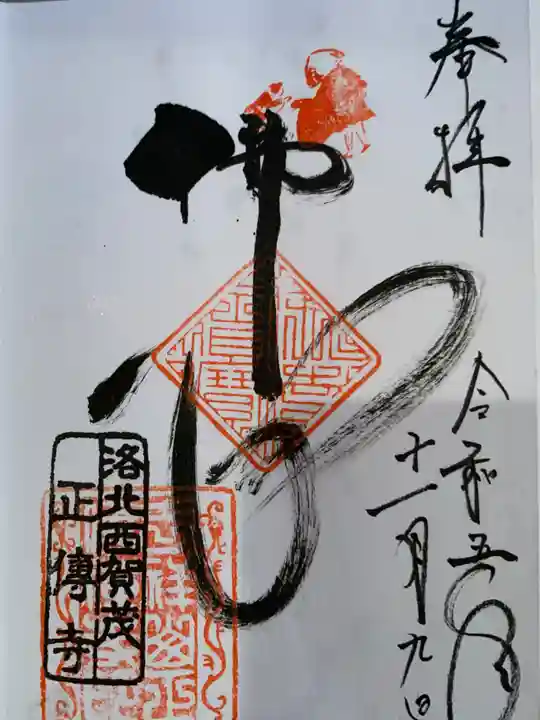 奉拝
令和五年
十一月九日
佛心
洛北西賀茂
正傳寺